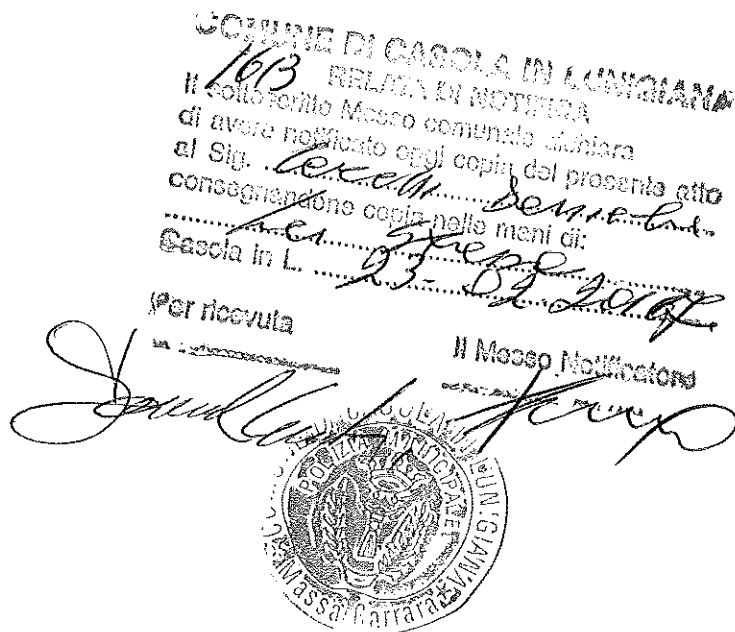 COMUNE DI CASOLA IN LUNIGIANA
1613 RELATA DI NOTIFICA
Il sottoscritto Messo comunale dichiara
di avere notificato oggi copia del presente atto
al Sig. ....................
consegnandone copia nelle mani di:
....................
Casola in L. 23-02-2017
Per ricevuta
Il Messo Notificatore
COMUNE DI CASOLA IN LUNIGIANA
POLIZIA MUNICIPALE
Massa Carrara